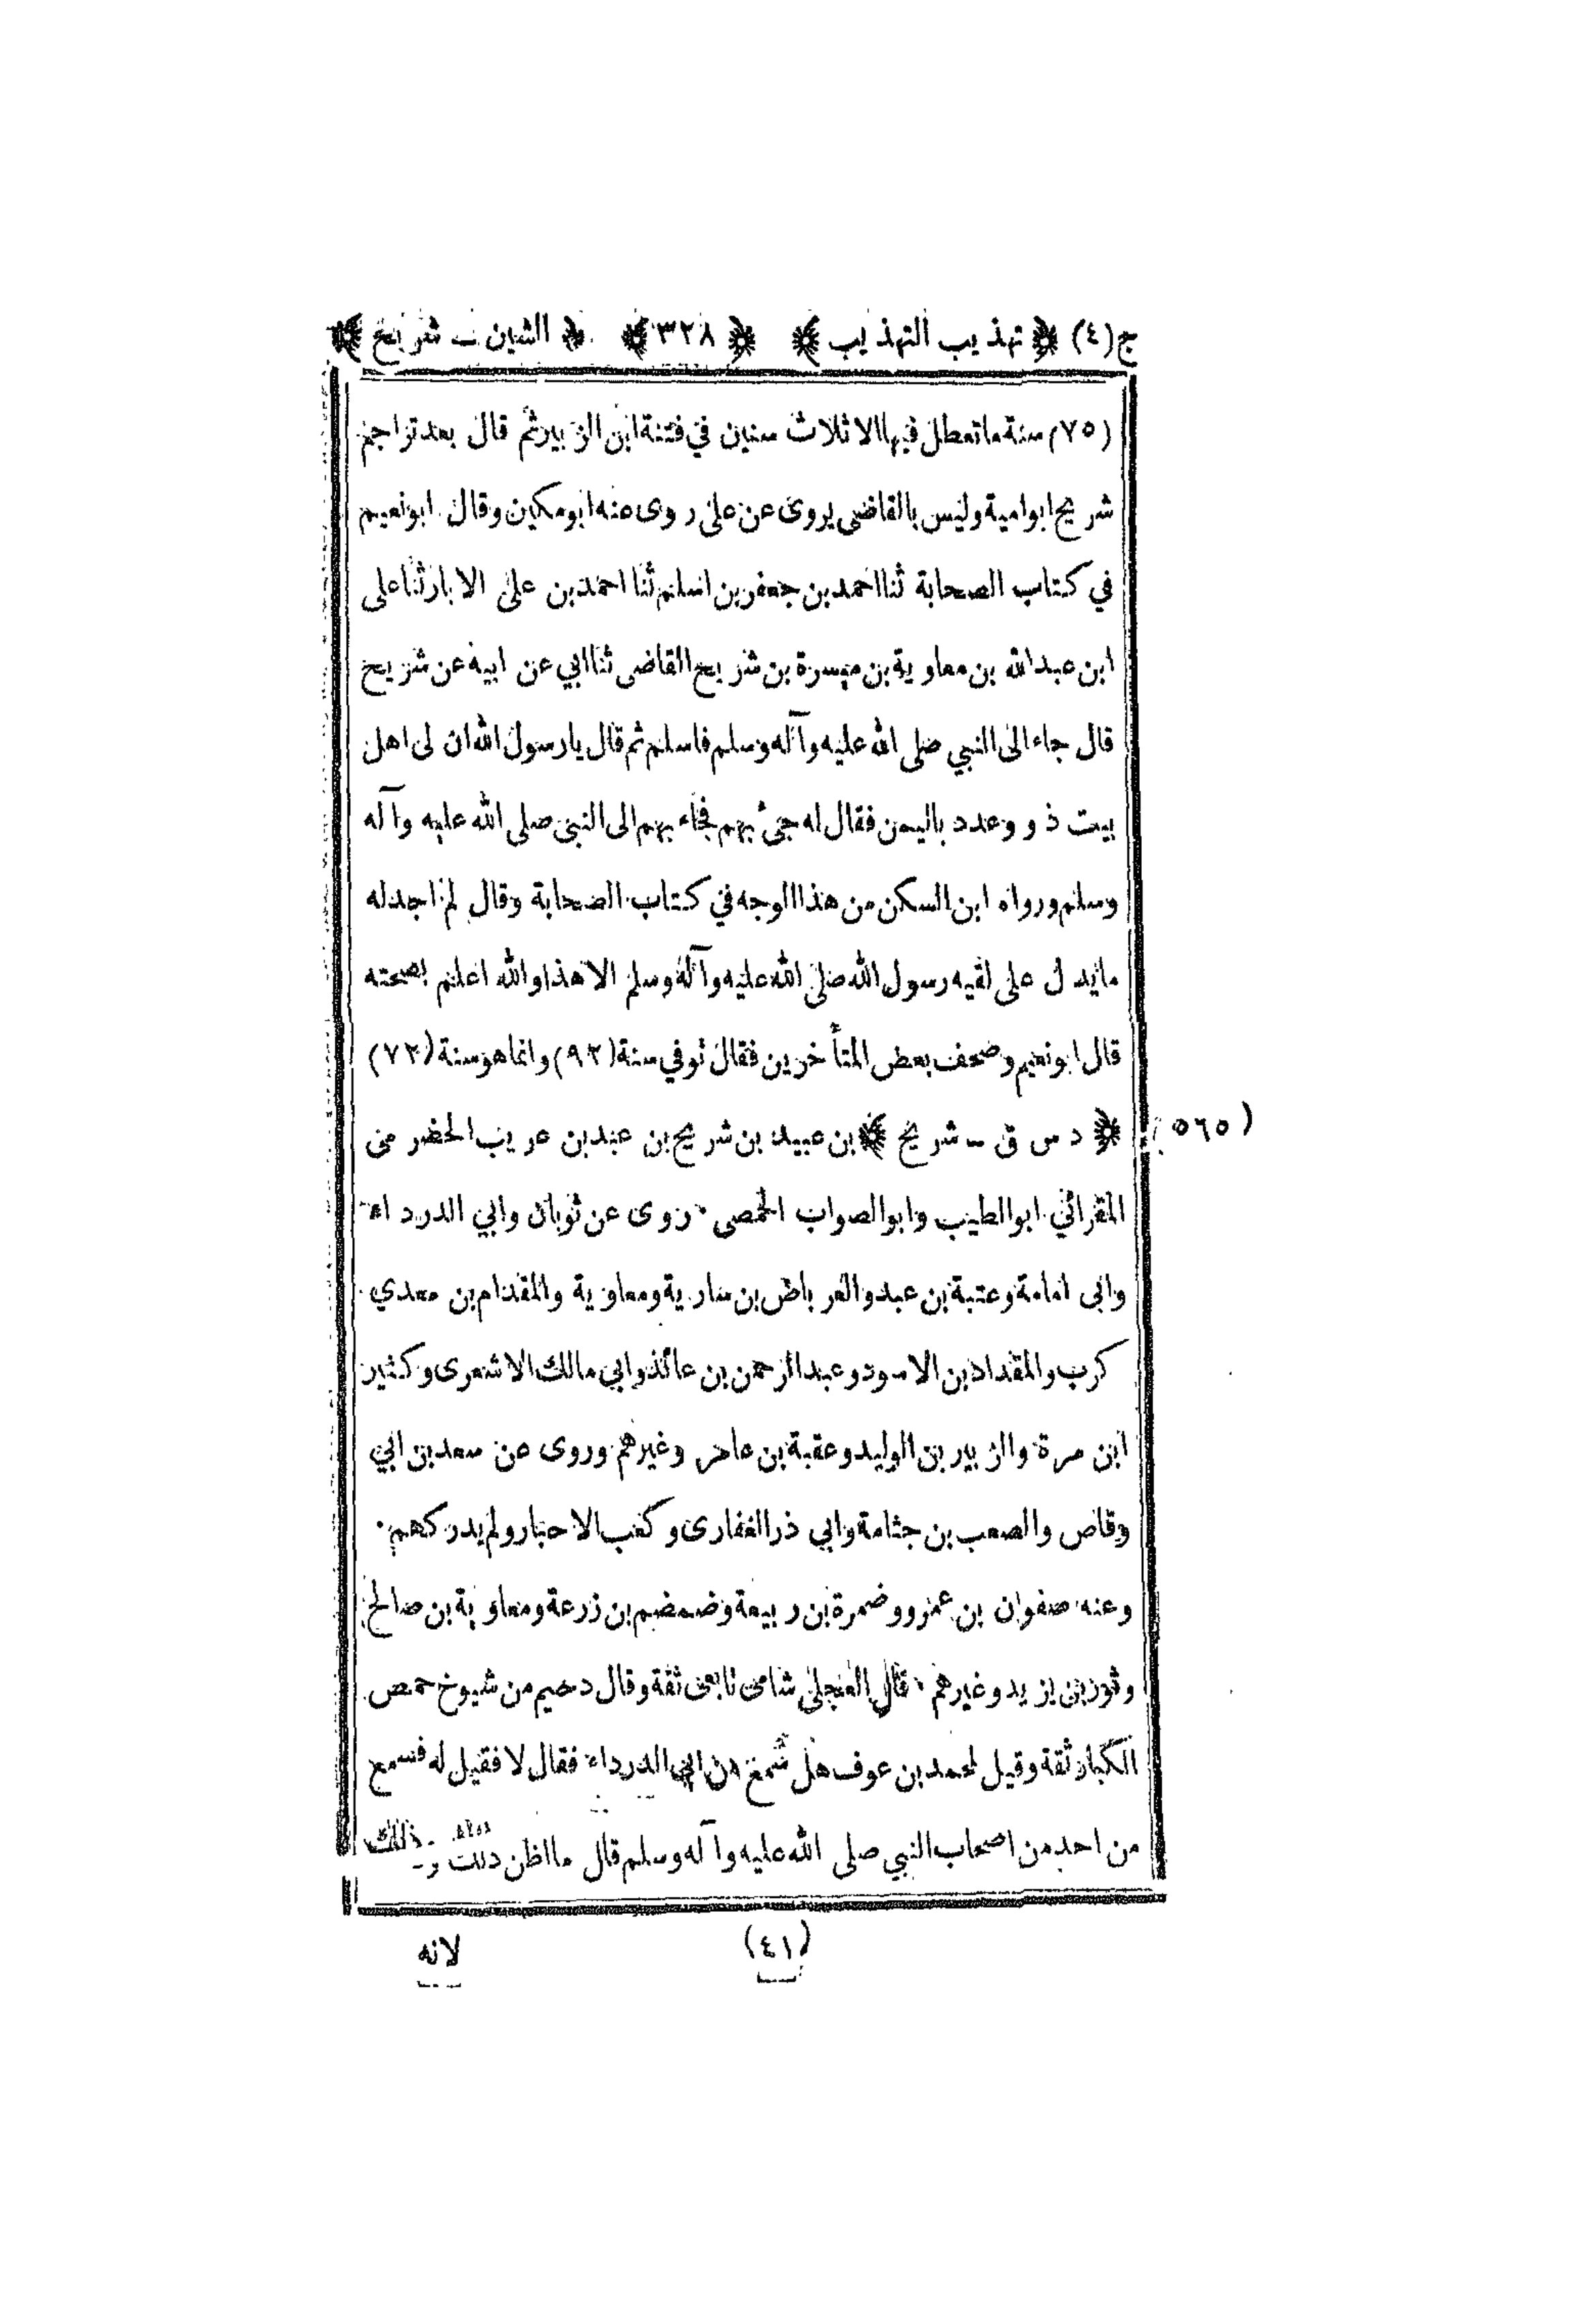 ج(٤) ﴿ تهذيب التهذيب ﴾ ﴿ ٣٢٨ ﴾ ﴿ الشين - شريح ﴾
(٧٥) سنة ما تعطل فيها الا ثلاث سنين في فتنة ابن الزبير ثم قال بعد تراجم
شريح ابوامية وليس بالقاضى يروى عن على روى عنه ابو مكين وقال ابونعيم
في كتاب الصحابة ثنا احمد بن جعفر بن اسلم ثنا احمد بن على الابار ثنا على
ابن عبدالله بن معاوية بن ميسرة بن شريح القاضى ثنا ابي عن ابيه عن شريح
قال جاء الى النبي صلى الله عليه وآله وسلم فاسلم ثم قال يارسول الله ان لى اهل
بيت ذو وعدد باليمن فقال له جئ بهم فجاء بهم الى النبي صلى الله عليه وآله
وسلم ورواه ابن السكن من هذا الوجه في كتاب الصحابة وقال لم اجد له
ما يدل على لقيه رسول الله صلى الله عليه وآله وسلم الا هذا والله اعلم بصحته
قال ابونعيم وصحف بعض المتأخرين فقال توفي سنة (٩٢) وانما هو سنة (٧٢)
(٥٦٥) ﴿ د س ق - شريح ﴾ بن عبيد بن شريح بن عبد بن عريب الحضرمى
المقرائي ابوالطيب وابوالصواب الحمصى٠ روى عن ثوبان وابي الدرداء
وابى امامة وعتبة بن عبد والعرباض بن سارية ومعاوية والمقدام بن معدي
كرب والمقداد بن الاسود وعبدالرحمن بن عائذ وابي مالك الاشعرى وكثير
ابن مرة والزبير بن الوليد وعقبة بن عامر وغيرهم وروى عن سعد بن ابي
وقاص والصعب بن جثامة وابي ذر الغفارى وكعب الاحبار ولم يدركهم٠
وعنه صفوان بن عمرو وضمرة بن ربيعة وضمضم بن زرعة ومعاوية بن صالح
وثور بن يزيد وغيرهم٠ قال العجلى شامى تابعى ثقة وقال دحيم من شيوخ حمص
الكبار ثقة وقيل لمحمد بن عوف هل سمع من ابي الدرداء فقال لا فقيل له فسمع
من احد من اصحاب النبي صلى الله عليه وآله وسلم قال ما اظن ذلك وذلك
(٤١) لانه